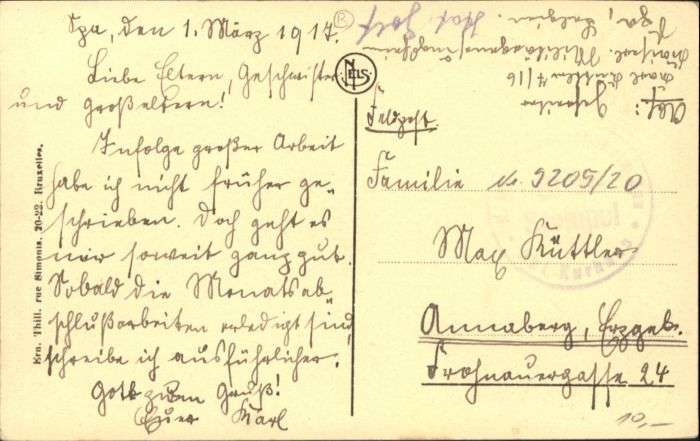 Spa, den 1. März 1917.
Liebe Eltern, Geschwister
und Großeltern!
Infolge großer Arbeit
habe ich nicht früher ge-
schrieben. Doch geht es
mir soweit ganz gut.
Sobald die Monatsab-
schlußarbeiten erledigt sind,
schreibe ich ausführlicher.
Gott zum Gruß!
Euer Karl
Ern. Thill, rue Simonis, 20-22, Bruxelles.
NELS
Abs:
Gefreiter
Karl Küttler 4/16
Kaiserl.
Spa, Belgien.
Feldpost.
Familie No. 9209/20
Max Küttler
Annaberg, Erzgeb.
Frohnauergasse 24
10,-